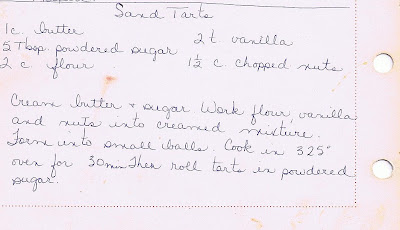 Sand Tarts
1c. butter
2 t vanilla
5 Tbsp. powdered sugar
2 c. flour
1½ c chopped nuts
Cream butter + sugar Work flour, vanilla
and nuts into creamed mixture.
Form into small balls. Cook in 325°
oven for 30 min Then roll tarts in powdered
sugar.